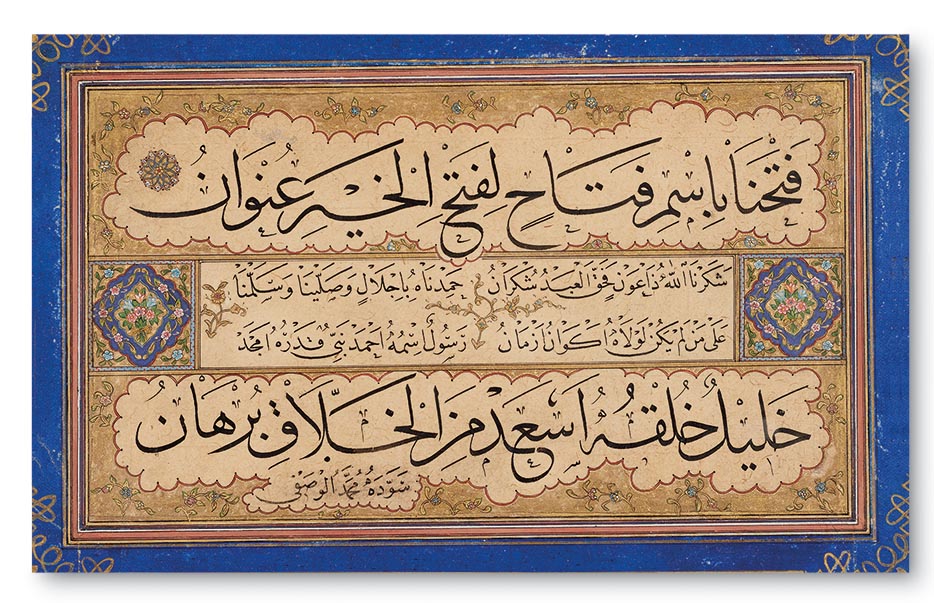 فَتَحْنَا بِاسْمِ فَتَّاحٍ لِفَتْحِ الْخَيْرِ عُنْوَانُ
شكرنا الله ذا عون فحق العبد شكران حمدناه بإجلال وصلينا وسلمنا
على من لم يكن لولاه أكوان أزمان رسول اسمه احمد نبي قدره امجد
خَلِيلٌ خُلْقُهُ اسعد مِنَ الخَلَّاقِ بُرْهَانُ
سوّده محمد الوصفي